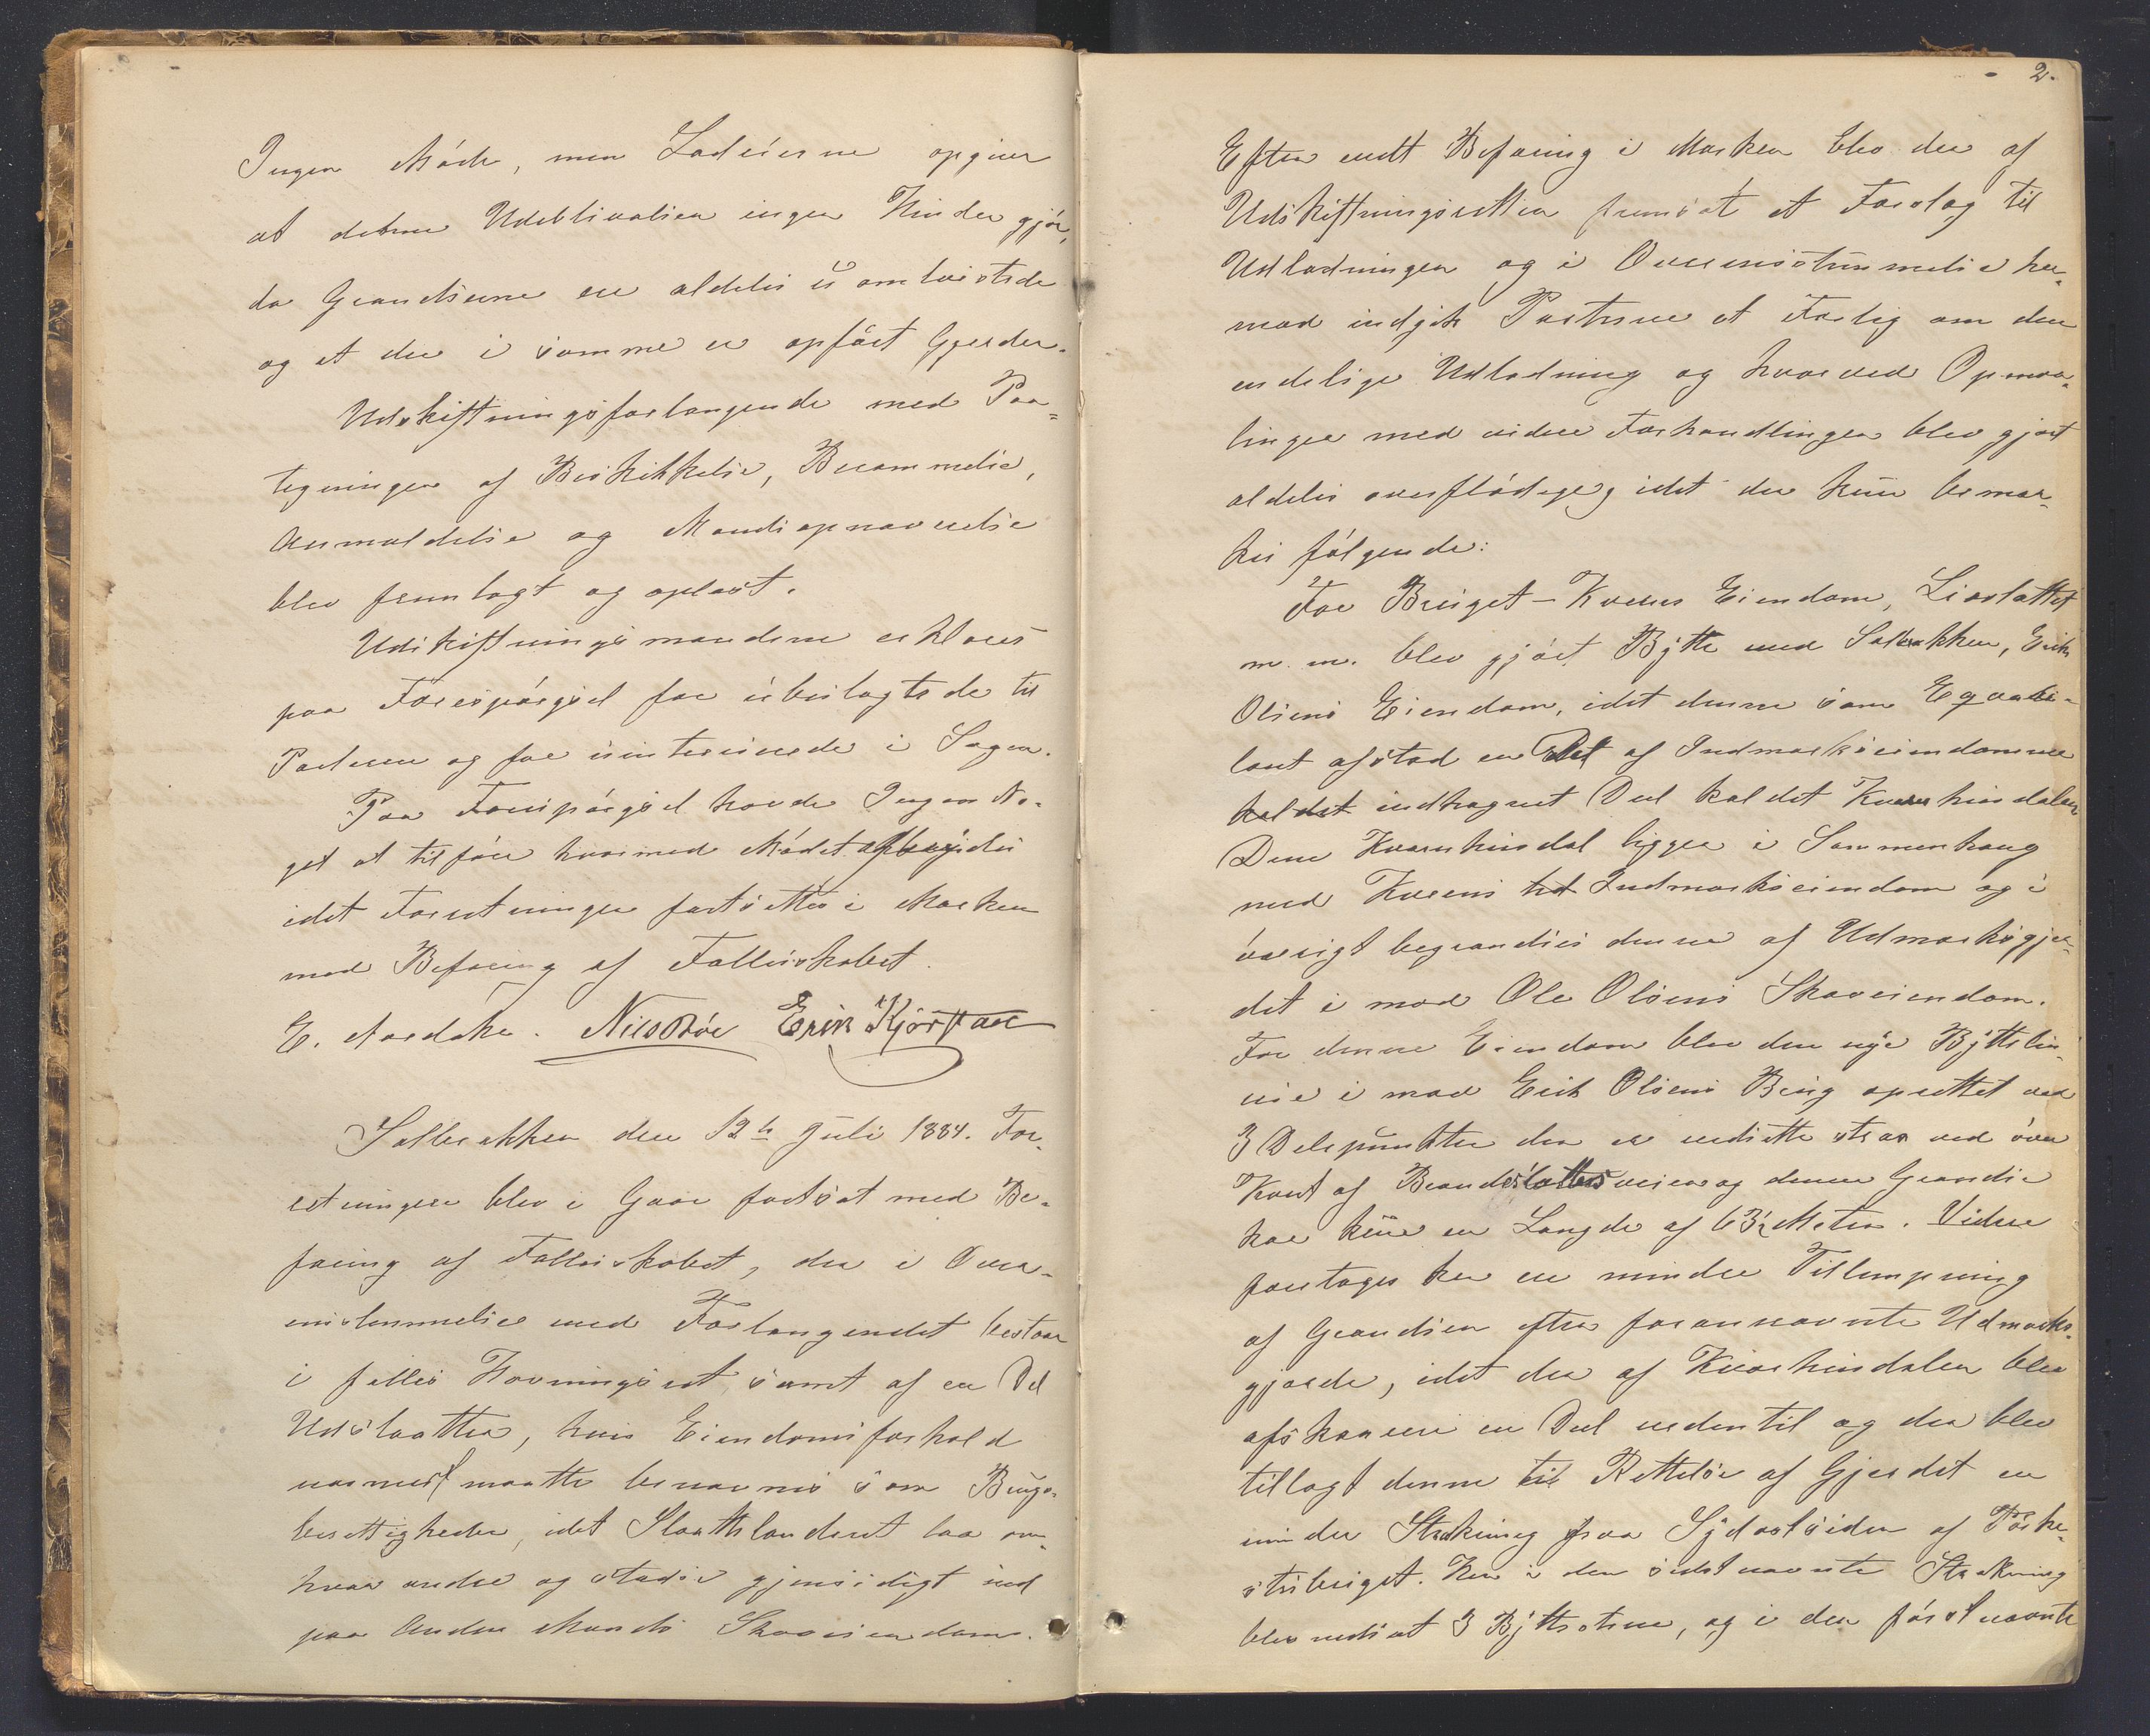 Ingen Möde, men Lodeierne opgiver
at denne Udeblivelsen ingen Hinder gjör,
da Grandserne ere aldeles uomtvistede
og at der i samme er opfört Gjerder.
Udskiftningsforlangende med Paa=
tegninger af Beskikkelse, Berammelse,
Anmeldelse og Mandsopnævnelse
blev fremlagt og oplæst.
Udskiftningsmændene erklæres
paa Forespörgsel for ubeslægtede til
Parterne og for uinteressede i Sagen.
Paa Forespörgsel havde Ingen No-
get at tilföre hvormed Mödet
idet Forretningen fortsættes i Marken
med Befaring af Fællesskabet.
E. Nordaker. Nils Röe Erik Kjörstad
Sætrebakken den 12te Juli 1884. For-
retningen blev i Gaar fortsat med Be-
faring af Fællesskabet, der i Over-
enstemmelse med Forlangendet bestaar
i fælles Havningsret samt af en Del
Udslaatter, hvis Eiendomsforhold
nærmest maatte benævnes som Brugs-
berettigheder, idet Slaattelandet laa om-
hver andre og stödte gjensidigt ind
paa Anden Mands Skoveiendom.
2.
Efter endt Befaring i Marken blev der af
Udskiftningsretten fremsat et Forslag til
Udlodningen og i Overensstemmelse her-
med indgik Parterne et Forlig om den
endelige Udlodning og hvorved Opmaa-
lingen med videre Forhandlinger blev gjort
aldeles overflödige, idet der kun bemær-
kes fölgende:
For Bruget - Kverns Eiendom, Lioslættet
m. m. blev gjört Bytte med Sætrebakken, Erik
Olsens Eiendom, idet denne som Eqvaliva-
lent afstod en Del af Indmarkseiendommene
kaldet indhegnet Deel kaldet Kvernhusdalen
Dene Kvernhusdal ligger i Sammenhæng
med Kverns Indmarkseiendom og i
övrigt begrændses denne af Udmarksgjer-
det i mod Ole Olsens Skoveiendom.
For denne Eiendom blev den nye Byttelin-
nie i mod Erik Olsens Brug oprettet ved
3 Delepunkter der er nedsatte strax ved övre
Kant af Brandslættesveien og denne Grændse
har kun en Længde af 63½ Meter. Videre
foretoges her en mindre Tillempning
af Grændsen efter forannævnte Udmarks-
gjærde, idet der af Kvernhusdalen blev
afskaaren en Deel nedentil og der blev
tillagt denne til Rettelse af Gjerdet en
mindre Strækning fra Sydostsiden af
. Her i den sidstnævnte Strækning
blev nedsat 3 Byttestene, og i den förstnævnte